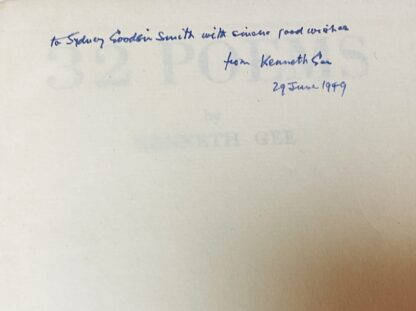 to Sydney Goodsir Smith with sincere good wishes
from Kenneth Gee
29 June 1949
32 POEMS
by
KENNETH GEE